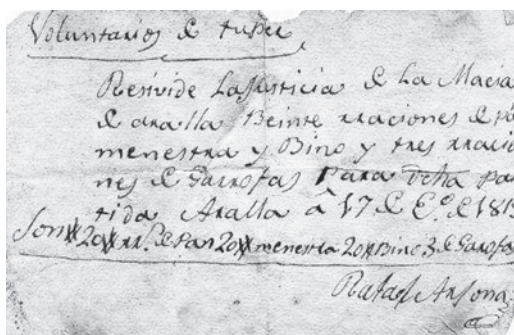 Voluntarios de
Resivide La Justicia de La Macia
de aralla Beinte rraciones de
menestra y Bino y tres rracio
nes de Garrofas para dcha par
tida Aralla â 17 de E.º de 181
Son 20 rr.s de Pan 20 menestra 20 Bino 3 de Garrofas
Rafael